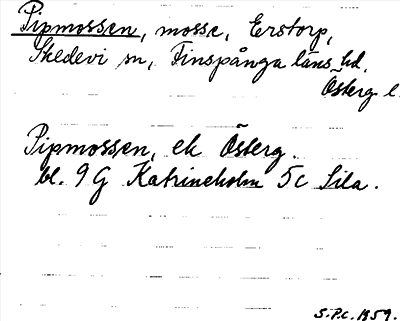 Pipmossen, mosse, Erstorp,
Skedevi sn, Finspånga läns hd.
Österg l.
Pipmossen, ek Österg.
bl. 9 G Katrineholm 5c Sila.
S.P.C. 1959.